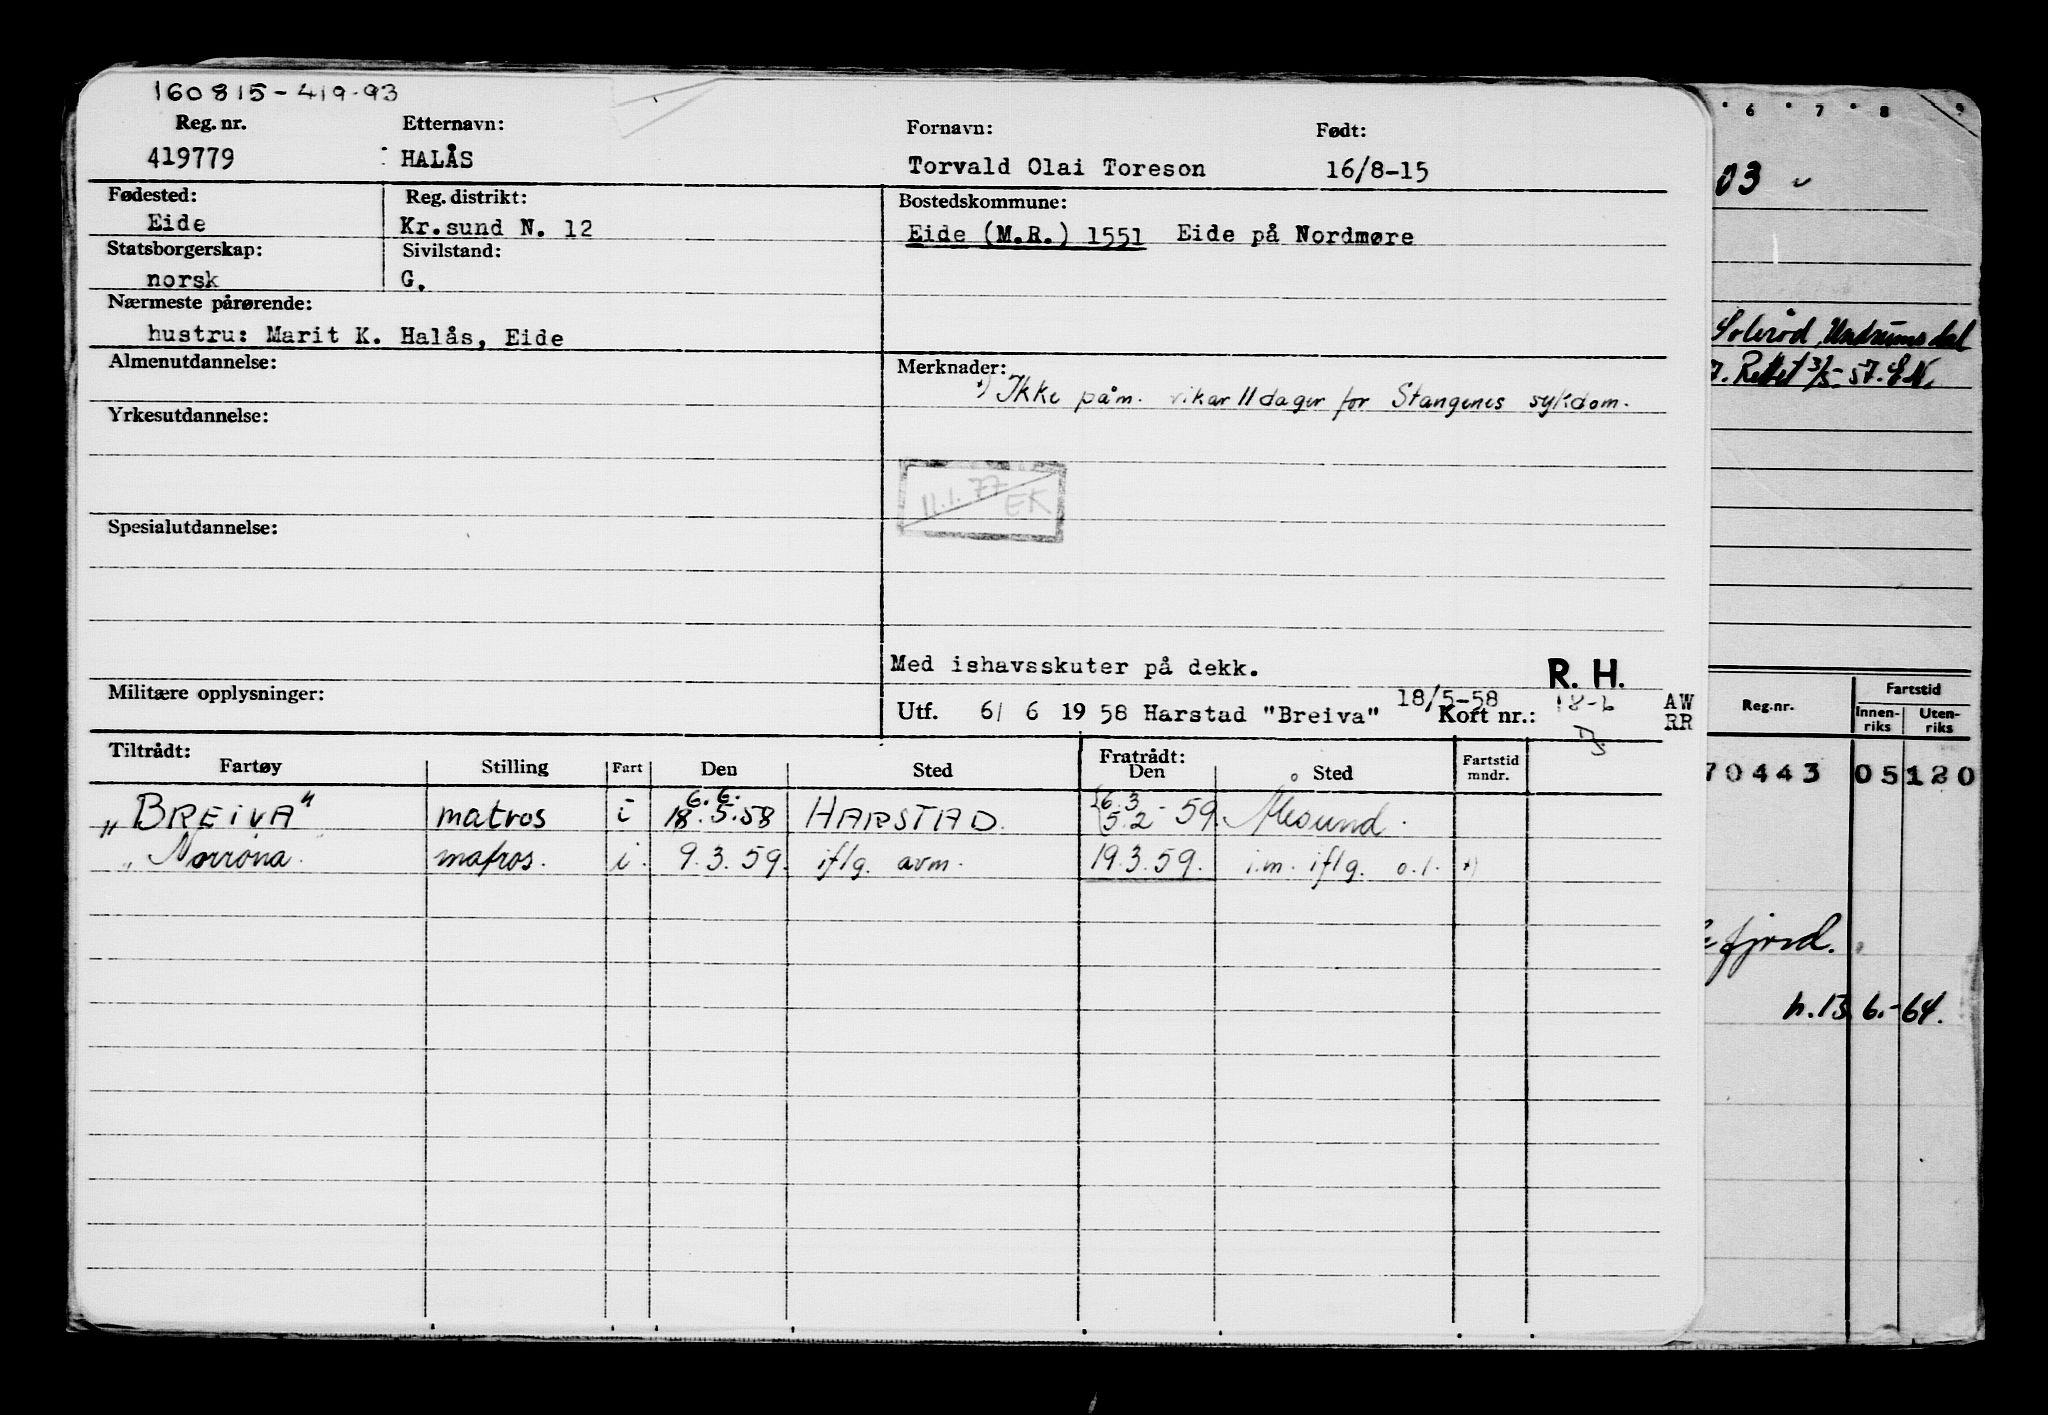 160815-419-93
Reg. nr. Etternavn: Fornavn: Født:
419779 HALÅS Torvald Olai Toreson 16/8-15
Fødested: Reg. distrikt: Bostedskommune:
Eide Kr.sund N. 12 Eide (M.R.) 1551 Eide på Nordmøre
Statsborgerskap: Sivilstand:
norsk G.
Nærmeste pårørende:
hustru: Marit K. Halås, Eide
Almenutdannelse: Merknader:
*) Ikke påm. vikar 11 dager for Stangenes sykdom.
Yrkesutdannelse:
11.1.77 EK
Spesialutdannelse:
Med ishavsskuter på dekk. R. H.
Militære opplysninger:
18/5-58 18-6 AW
Utf. 6/ 6 19 58 Harstad "Breiva" Kort nr.: RR
Tiltrådt: Fratrådt:
Fartøy Stilling Fart Den Sted Den Sted Fartstid mndr.
6.6. 6.3
"BREIVA" matros i 18.5.58 HARSTAD. 5.2-59. Ålesund.
" Norrøna. matros. i. 9.3.59. iflg. avm. 19.3.59. i.m. iflg. o.l. *)
6 7 8 9
03
Solerød, Undrumsdal
7. Rettet 3/5-57. E.N.
Reg.nr. Fartstid
Innen-riks Uten-riks
70443 05 120
fjord.
h. 13 6.-64.